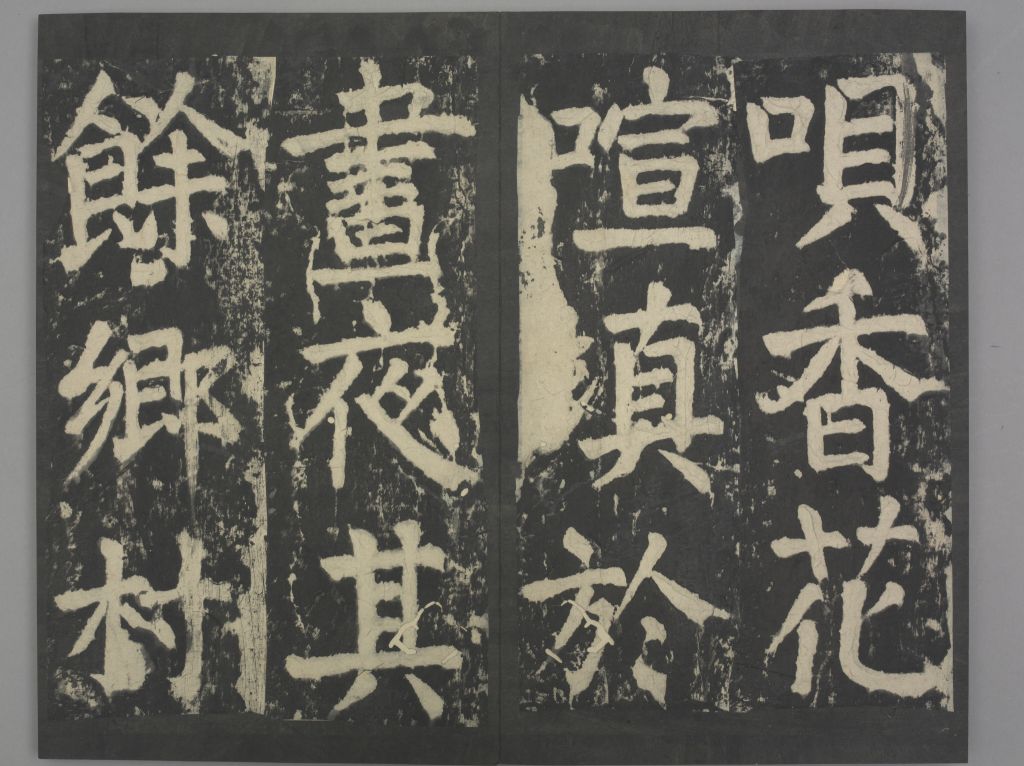 唄香花
喧真於
晝夜其
餘鄉村